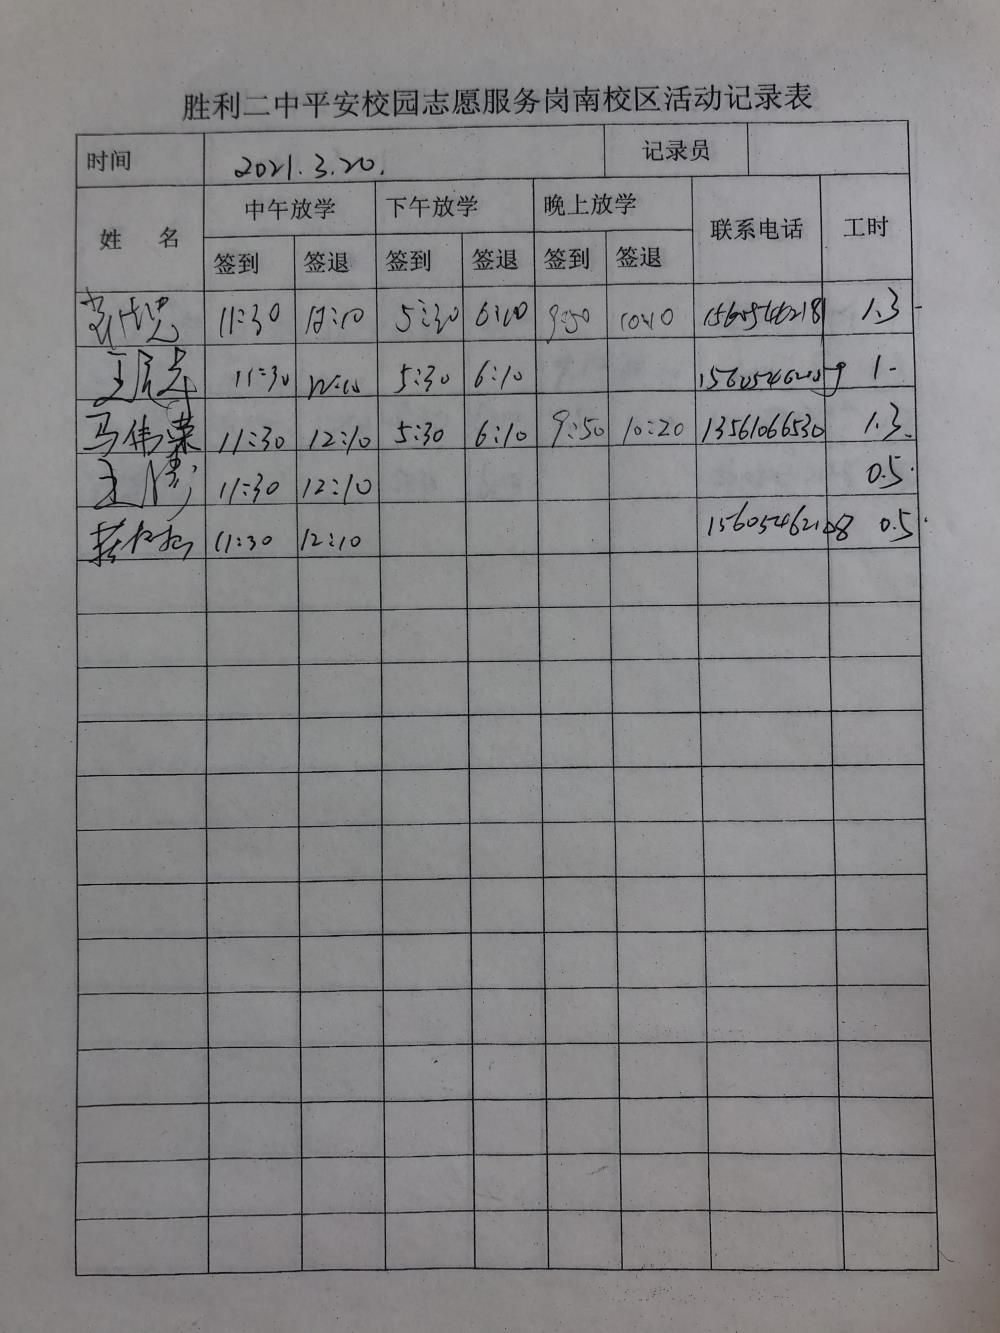 胜利二中平安校园志愿服务岗南校区活动记录表
时间 2021.3.20. 记录员
姓 名 中午放学 下午放学 晚上放学 联系电话 工时
签到 签退 签到 签退 签到 签退
11:30 12:10 5:30 6:10 9:50 10:10 15605462181 1.3
11:30 12:10 5:30 6:10 1.
马伟荣 11:30 12:10 5:30 6:10 9:50 10:20 13561066530 1.3.
王 11:30 12:10 0.5.
11:30 12:10 0.5.